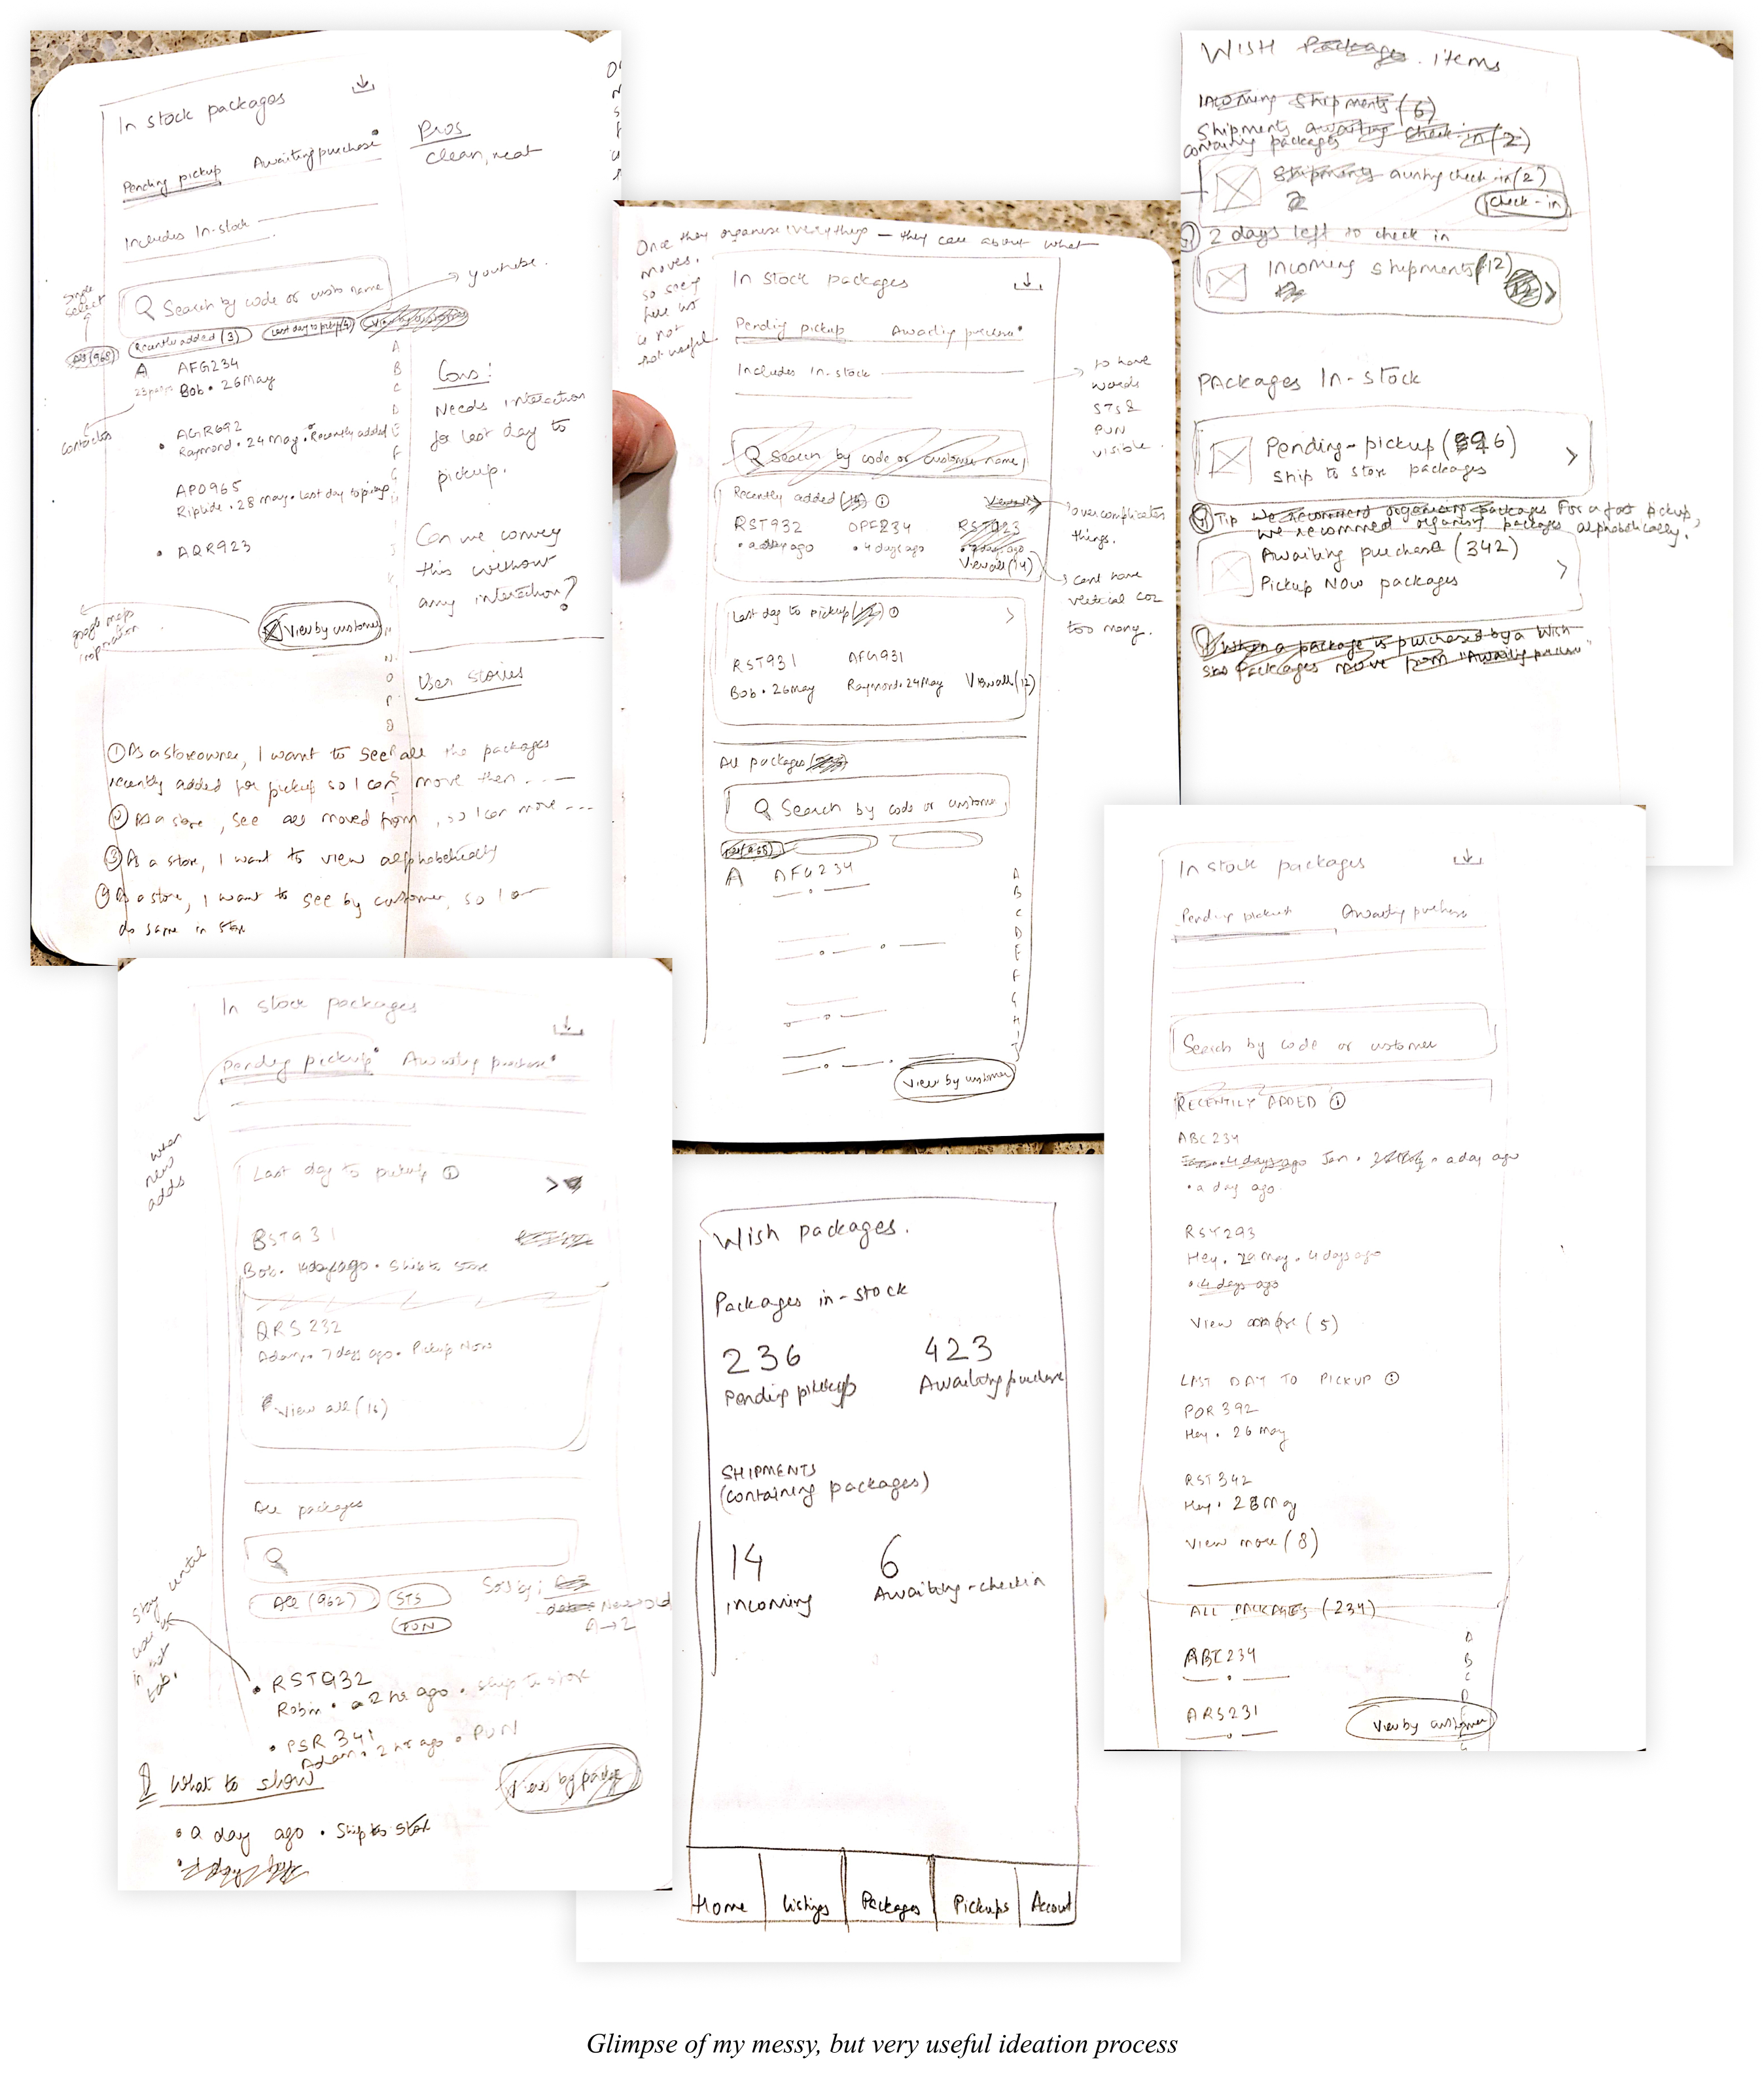 In stock packages
Pending pickup
Awaiting purchase
Includes In-stock
Search by code or
name
Recently added (3)
Last day to pickup
A AFG234
Bob • 26 May
AGR692
Raymond • 24 May • Recently added
APO965
Riptide • 28 May • Last day to pickup
AQR923
View by customer
A
B
C
D
E
F
G
Single
select
contacts
google maps
inspiration
youtube.
Pros
clean, neat
Cons:
Needs interaction
for last day to
pickup.
Can we convey
this without
any interaction?
User stories
① As a storeowner, I want to see all the packages
recently added for pickup so I can move them
② As a store, see all moved from, so I can move ---
③ As a store, I want to view alphabetically
④ As a store, I want to see by customer, so I
do same in
Once they organise everything — they care about what
moves.
so seeing
here
is not
not useful
In stock packages
Pending pickup
Awaiting purchase
Includes In-stock
to have
words
STS &
PUN
visible.
Search by code or customer name
Recently added
View all
RST932 OPF234 RST923
• a day ago • 4 days ago
View all (14)
overcomplicates
things.
cant have
vertical
too many.
Last day to pickup
RST931 AFG931
Bob • 26 May Raymond • 24 May View all (12)
All packages
Search by code or customer
A AFG234
A
B
C
D
E
F
G
H
View by customer
WISH Packages. items
Incoming shipments (6)
Shipments awaiting check-in (2)
containing packages
Shipments awaiting check-in (2)
2
check-in
2 days left to check in
Incoming shipments (12)
PACKAGES IN-STOCK
Pending-pickup
Ship to store packages
Tip We recommend organising packages For a fast pickup,
we recommend organising packages alphabetically.
Awaiting purchase (342)
Pickup Now packages
When a package is purchased by a Wish
packages move from "Awaiting
In stock packages
Pending pickup
Awaiting purchase
when
new
adds
Last day to pickup
BST931
Bob • 14 days ago • Ship to store
QRS 232
Adam • 7 days ago • Pickup Now
View all (16)
All packages
All (962)
STS
PUN
Sort by:
A → Z
stay until
user is
in not
tab.
• RST932
Robin • a 2 hr ago • ship to store
• PSR 341
Adam • 2 hr ago • PUN
View by package
What to show
• a day ago • Ship to store
Wish packages.
Packages in-stock
236 423
Pending pickup Awaiting purchase
SHIPMENTS
(containing packages)
14 6
Incoming Awaiting-checkin
Home Listings Packages Pickups Account
In stock packages
Pending pickup
Awaiting purchase
Search by code or customer
RECENTLY ADDED
ABC 234
4 days ago Jon • a day ago
• a day ago
RST293
Hey. 29 May • 4 days ago
• 4 days ago
View more (5)
LAST DAY TO PICKUP
POR 392
Hey • 26 May
RST 342
Hey • 28 May
View more (8)
ALL PACKAGES (234)
ABC234
ARS231
A
B
C
D
View by customer
Glimpse of my messy, but very useful ideation process